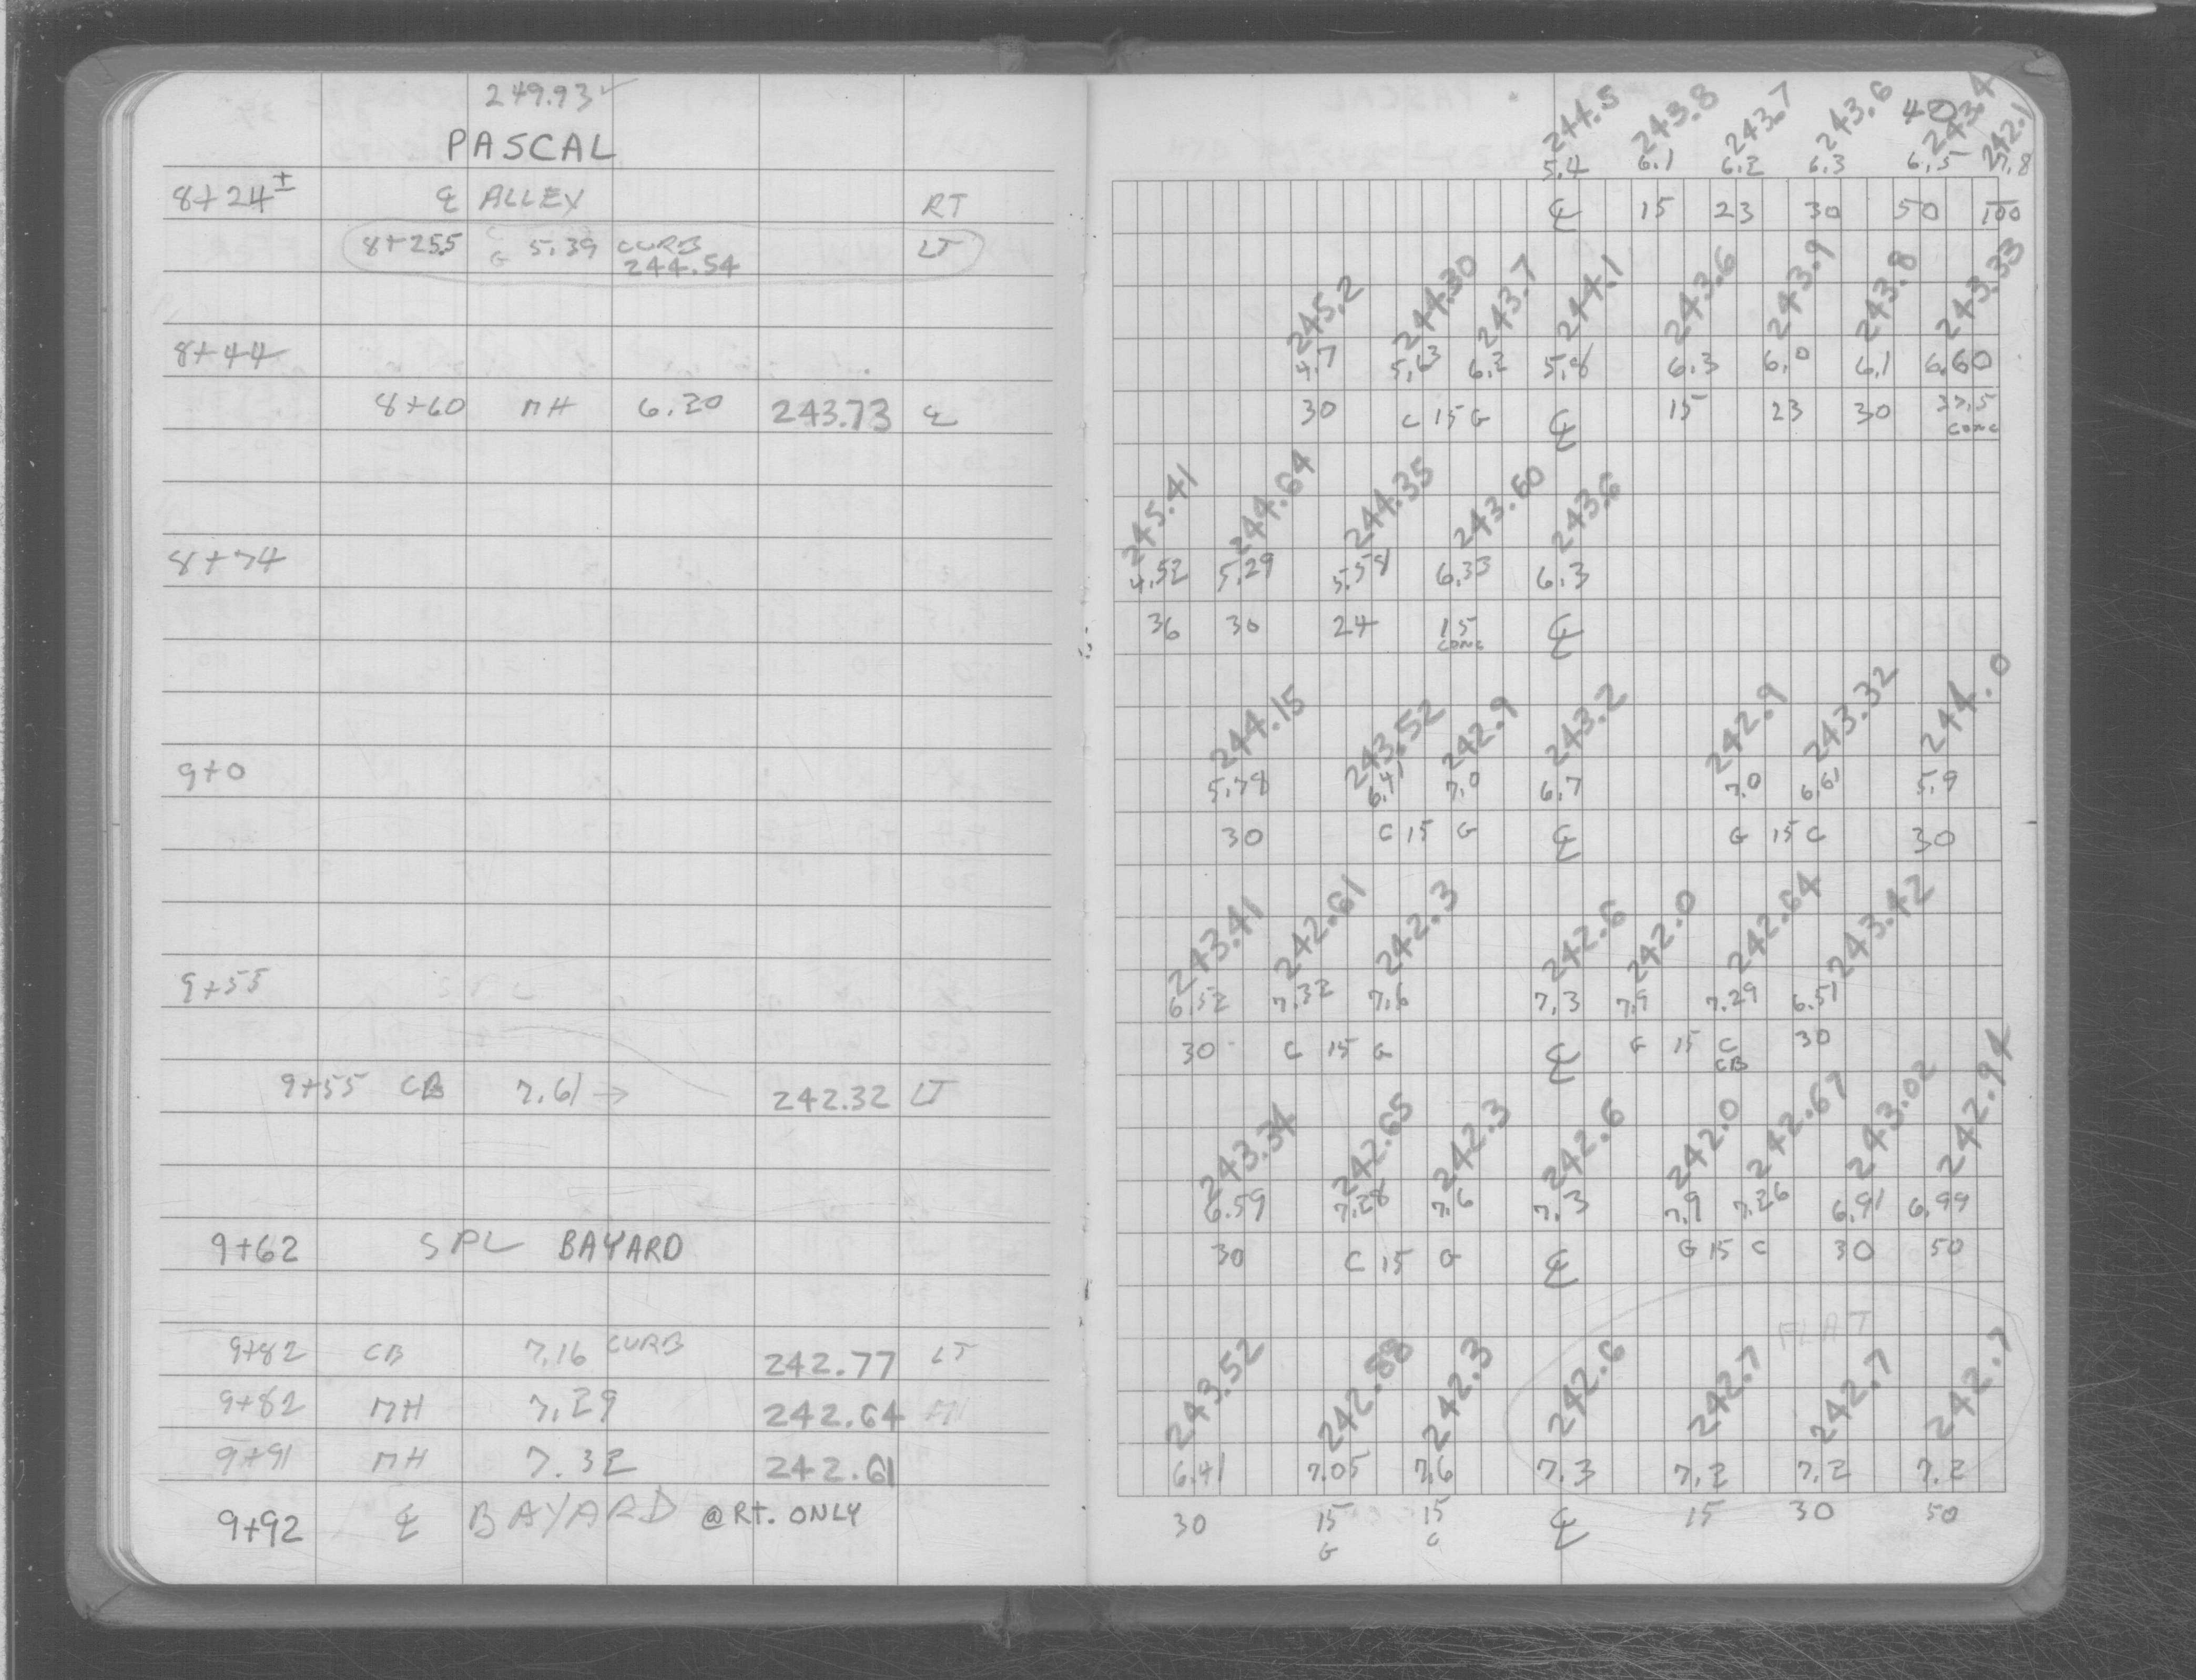 249.93 ✓
PASCAL
8+24± ℄ ALLEY RT
8+255 C G 5.39 CURB 244.54 LT
8+44
8+60 MH 6.20 243.73 ℄
8+74
9+0
9+55
9+55 CB 7.61 → 242.32 LT
9+62 SPL BAYARD
9+82 CB 7.16 CURB 242.77 LT
9+82 MH 7.29 242.64
9+91 MH 7.32 242.61
9+92 ℄ BAYARD @RT. ONLY
40
244.5 243.8 243.7 243.6 243.4 242.1
5.4 6.1 6.2 6.3 6.5 7.8
℄ 15 23 30 50 100
245.2 244.30 243.7 244.1 243.6 243.9 243.8 243.33
4.7 5.63 6.2 5.8 6.3 6.0 6.1 6.60
30 C 15 G ℄ 15 23 30 37.5
CONC
245.41 244.64 244.35 243.60 243.6
4.52 5.29 5.58 6.33 6.3
36 30 24 15 ℄
CONC
244.15 243.52 242.9 243.2 242.9 243.32 244.0
5.78 6.41 7.0 6.7 7.0 6.61 5.9
30 C 15 G ℄ G 15 C 30
243.41 242.61 242.3 242.6 242.0 242.64 243.42
6.52 7.32 7.6 7.3 7.9 7.29 6.51
30 C 15 G ℄ G 15 C 30
CB
243.34 242.65 242.3 242.6 242.0 242.67 243.02 242.94
6.59 7.28 7.6 7.3 7.9 7.26 6.91 6.99
30 C 15 G ℄ G 15 C 30 50
FLAT
243.52 242.88 242.3 242.6 242.7 242.7 242.7
6.41 7.05 7.6 7.3 7.2 7.2 7.2
30 15 15 ℄ 15 30 50
G C